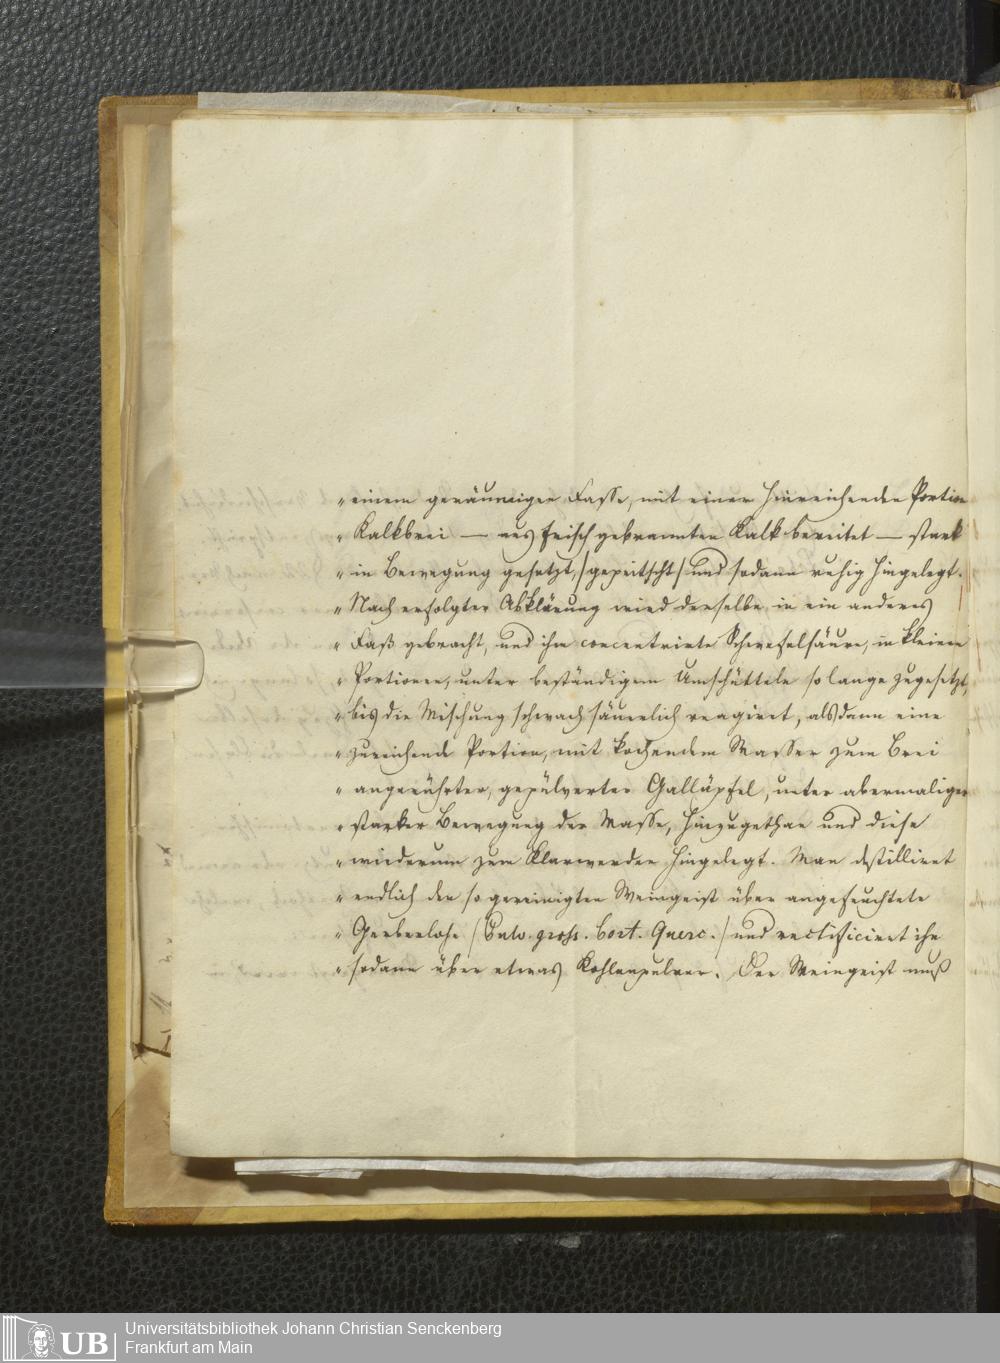 „ einem geräumigen Fasse, mit einer hinreichenden Portion
„ Kalkbrei — aus frisch gebranntem Kalk bereitet — stark
„ in Bewegung gesetzt, /gepeitscht/ und sodann ruhig hingelegt.
„ Nach erfolgter Abklärung wird derselbe in ein anderes
„ Faß gebracht, und ihm concentrirte Schwefelsäure, in kleinen
„ Portionen, unter beständigem Umschütteln so lange zugesetzt,
„ bis die Mischung schwach säuerlich reagiret, alsdann eine
„ zureichende Portion, mit kochendem Wasser zum Brei
„ angerührter, gepülverter Galläpfel, unter abermaliger
„ starker Bewegung der Masse, hinzugethan und diese
„ wiederum zum Klarwerden hingelegt. Man destilliret
„ endlich den so gereinigten Weingeist über angefeuchtete
„ Gerberlohe /Pulv. gross. Cort. Querc./ und rectificiret ihn
„ sodann über etwas Kohlenpulver. Der Weingeist muß
UB
Universitätsbibliothek Johann Christian Senckenberg
Frankfurt am Main